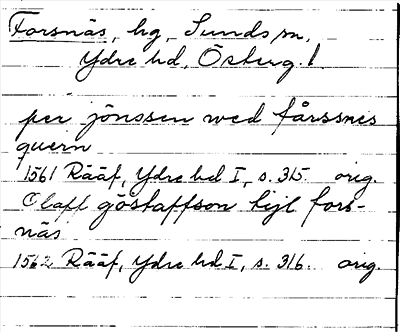 Forsnäs, hg, Sunds sn,
Ydre hd, Österg. l.
per jönssen wed fårssnes
quern
1561 Rääf, Ydre hd I, s. 315. orig.
Olaff göstaffson tijl fors-
näs
1562 Rääf, Ydre hd I, s. 316. orig.